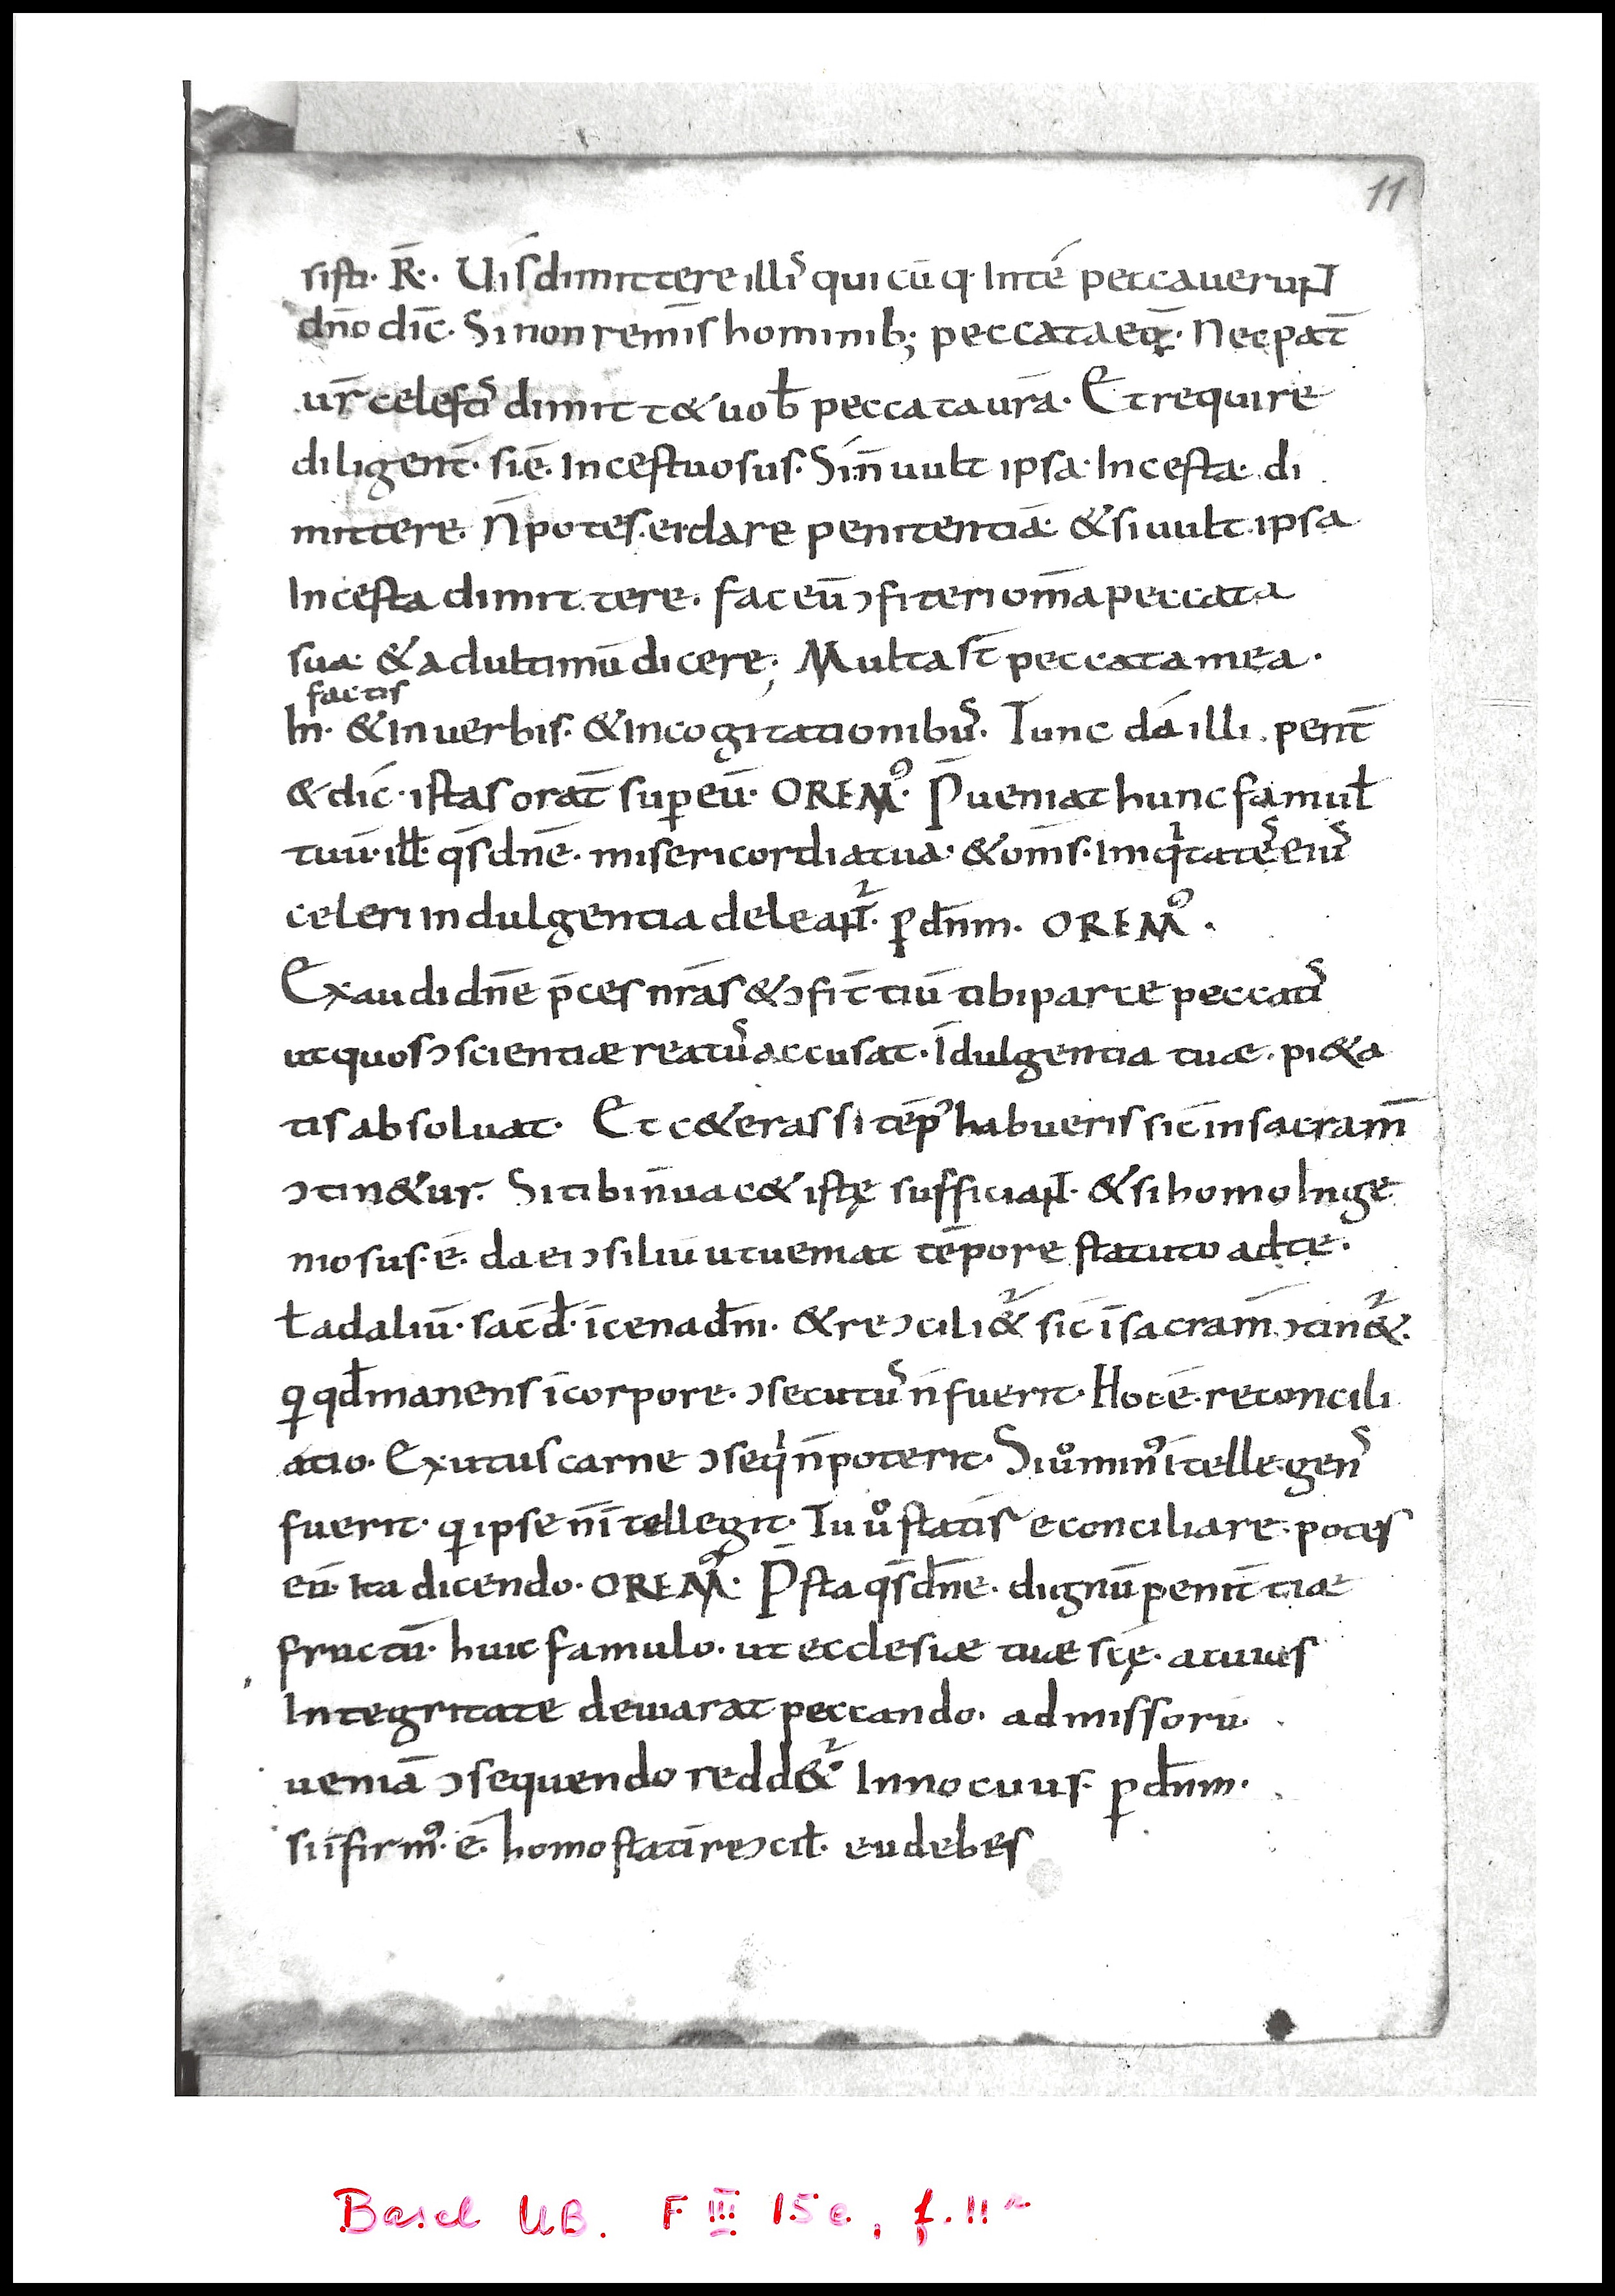 11
sisti· R̄·. Uis dimittere illis qui cū q· Inte peccauerunt
dn̄o dic̄· Si non remis̄ hominib; peccata eoꝝ· Nec pat̄
ur̄ celestis dimitt& uob̄ peccata ur̄a· Et require
diligent̄· si ē· Incestuosus· Si n̄ uult ipsa· Incesta· di
mittere· N̄ potes· ei dare penitentiā· & si uult· ipsa
Incesta dimittere· fac eū ɔfiteri om̄a peccata
sua· & ad ultimū dicere; Multa st̄ peccata mea·
factis
In· & in uerbis· & in cogitationibus· Tunc da illi· penit̄
& dic̄· istas orat̄ super eū· OREMꝰ· P̄ueniat hunc famuł
tuū· ill̄· qs̄ dn̄e· misericordia tua· & om̄s· iniqitates eius
celeri indulgentia deleant᷑· ꝑ dn̄m· OREMꝰ·
Exaudi dn̄e p̄ces nr̄as & ɔfit̄tiū tibi parce peccatis
ut quos ɔscientiæ reatus accusat· Īdulgentia tuæ· pi&a
tis absoluat· Et c&eras si tēpꝰ habueris sic̄ in sacram̄
ɔtin&ur· Si tibi n̄ uac& istę sufficiant· & si homo Inge
niosus· ē· da ei ɔsiliū ut ueniat tēpore statuto ad te·
ł ad aliū· sacd̄· īcenadn̄i· & reɔcili&᷑ sic̄ ī sacram̄· ɔtin&᷑·
ꝗ qd̄ manens ī corpore· ɔsecutus n̄ fuerit· Hoc ē· reconcili
atio· Exutus carne ɔseqi n̄ poterit· Si uº minꝰ ītellegens
fuerit· ꝗ ipse n̄ ītellegit· Tu uº statīs econciliare· potes
eū· Ita dicendo· OREMꝰ· P̄sta qs̄ dn̄e· dignū penit̄tiæ
fructū· huic famulo· ut ecclesiæ tuæ scę· a cuius
Integritate deuiarat peccando· admissorū·
ueniā ɔsequendo redd&᷑· Innocuus· ꝑ dn̄m·
si īfirmꝰ· ē· homo statī reɔcił· eū debes
Basel UB. F III 15e, f. 11r